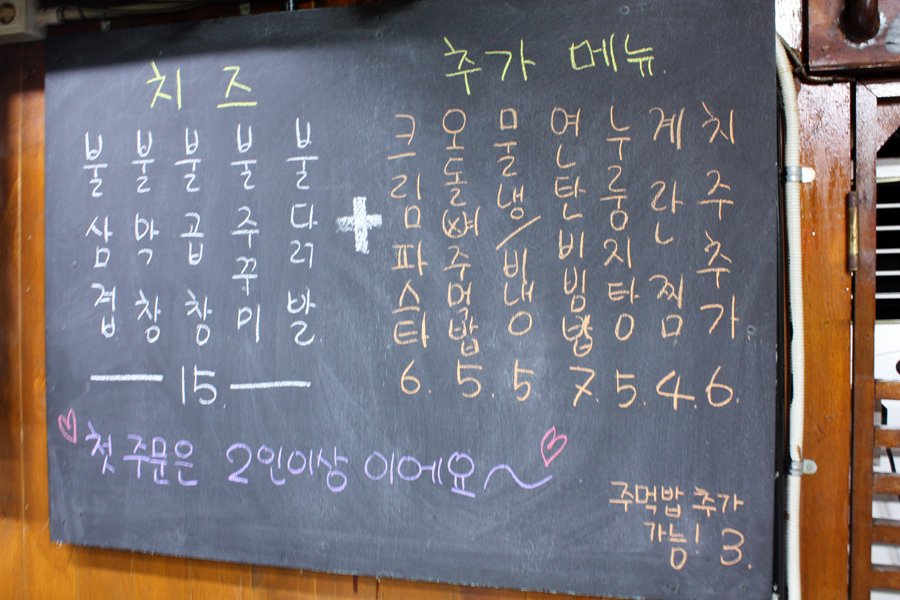 치즈
불삼겹
불막창
불곱창
불주꾸미
불닭발
15.
+
추가 메뉴.
크림파스타 6.
오돌뼈주먹밥 5.
물냉/비냉 5
연탄비빔밥 7.
누룽지탕 5.
계란찜 4.
치주추가 6.
첫 주문은 2인이상 이에요~
주먹밥 추가
가능! 3.